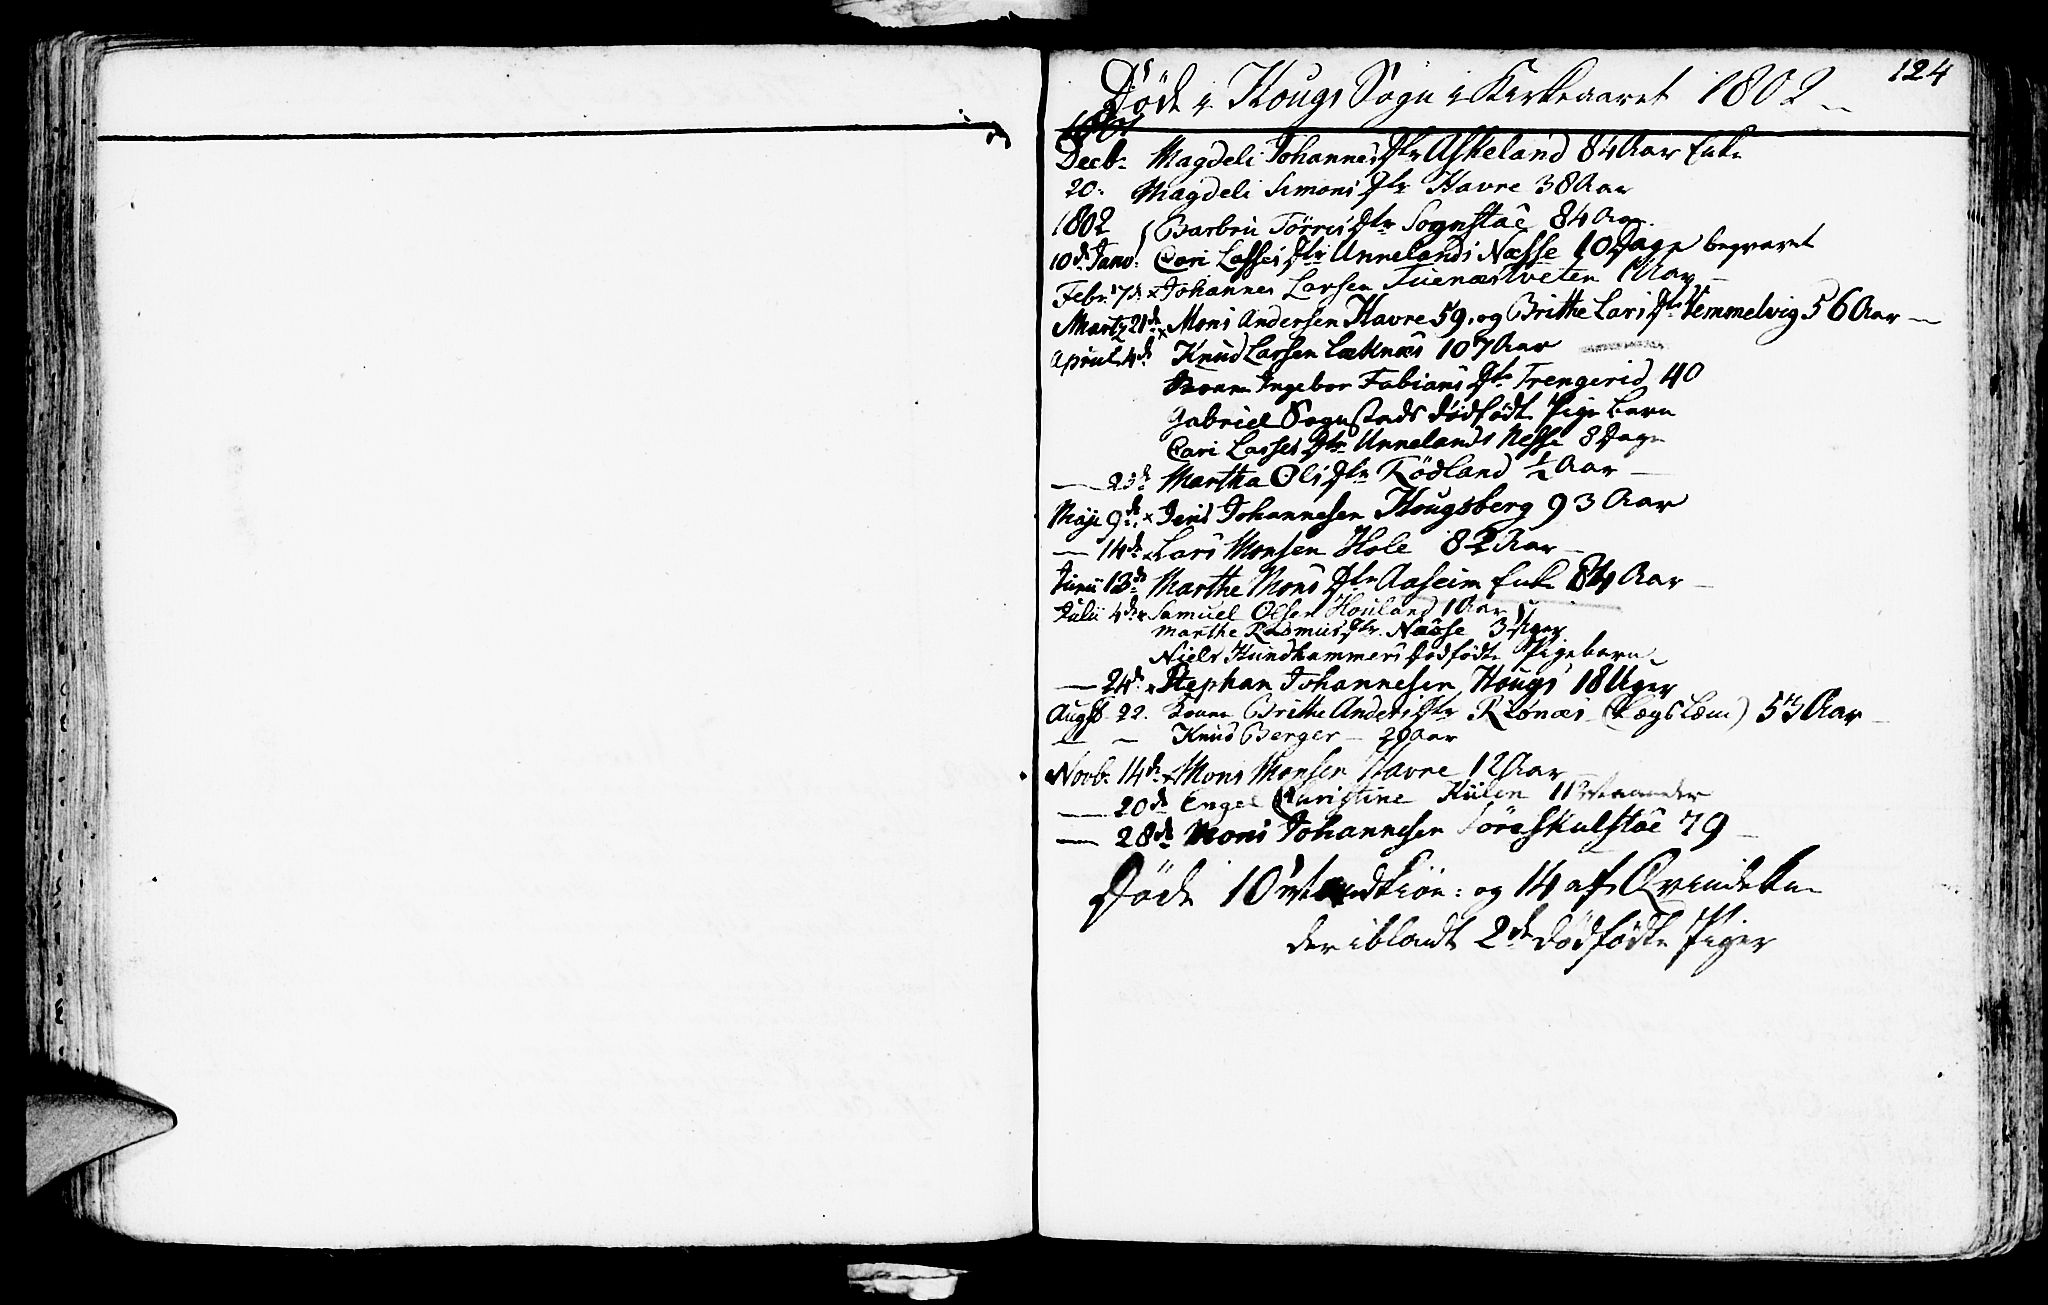 124
Døde i Hougs Sogn i Kirkeaaret 1802
1801
Decb: Magdeli Johannes Dtr Askeland 84 Aar Enke
20: Magdeli Simons Dtr Havre 38 Aar
1802 Barbru Tørris Dtr Sognstaë 84 Aar
10de Janv: Cari Lasses Dtr Unnelands Næsse 10 Dage begravet
Febr: 7de x Johannes Larsen Tuenæstveten 1 Aar
Martz 21de x Mons Andersen Havre 59, og Brithe Lars Dtr Hemmelvig 56 Aar
April 4de Knud Larsen Læknæs 107 Aar
Konen Ingebor Fabians Dtr Trengerid 40
Gabriel Sognstads dødfødte Pige barn
Cari Lasses Dtr Unnelands Nesse 8 Dage
Martha Ols Dtr Rödland ½ Aar
Maji 9de x Jens Johannesen Hougsberg 93 Aar
14de x Lars Monsen Hole 82 Aar
Junii 13de Marthe Mons Dtr Aaseim Enke 84 Aar
Julii 4de x Samuel Olsen Houland 1 Aar
Marthe Rasmus Dtr. Næsse 3 Uger
Niels Kundhammers Dødfødte Pigebarn
24de x Stephan Johannesen Hougs 18 Uger
Augst. 22. Konen Brithe Anders Dtr Risnæs (Lægslæm) 53 Aar
Knud Berger 29 Aar
Novb. 14de x Mons Monsen Havre 12 Aar
20de Engel Christine Kulen 11 Maaneder
28de Mons Johannesen Töreskulstaë 79
Døde 10 Mandkiøn: og 14 af Qvindekn
der iblandt 2de dødfødte Piger